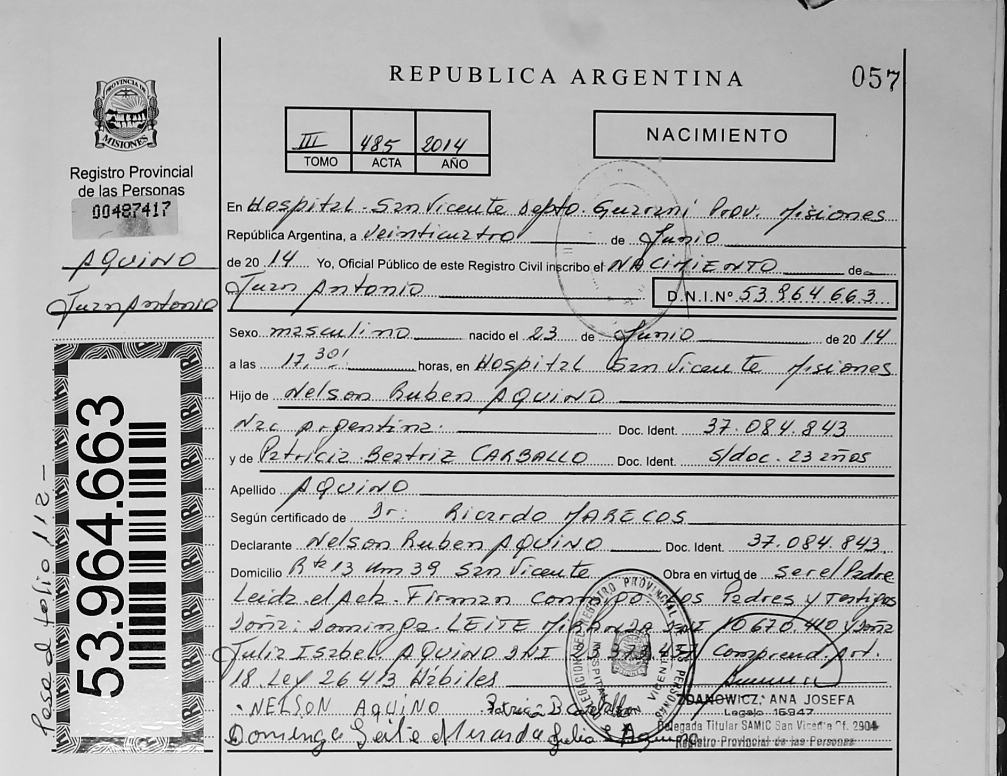 REPUBLICA ARGENTINA
057
PROVINCIA DE
MISIONES
Registro Provincial
de las Personas
00487417
AQUINO
Juan Antonio
53.964.663
Pasa al folio 112 -
III 485 2014
TOMO ACTA AÑO
NACIMIENTO
En Hospital San Vicente Depto. Guarani Prov. Misiones
República Argentina, a veinticuatro de Junio
de 2014 Yo, Oficial Público de este Registro Civil inscribo el NACIMIENTO de
Juan Antonio D.N.I.Nº 53.964.663
Sexo masculino nacido el 23 de Junio de 2014
a las 17,30' horas, en Hospital San Vicente Misiones
Hijo de Nelson Ruben AQUINO
Nac Argentina. Doc. Ident. 37.084.843
y de Patricia Beatriz CARBALLO Doc. Ident. S/doc. 23 años
Apellido AQUINO
Según certificado de Dr. Ricardo MARECOS
Declarante Nelson Ruben AQUINO Doc. Ident. 37.084.843
Domicilio Rta 13 Km 39 San Vicente Obra en virtud de ser el Padre
Leida el Acta. Firman Conmigo Los Padres y Testigos
Doña: Dominga LEITE DNI 10.670.410 y Doña
Julia Isabel AQUINO DNI Comprend. Art.
18 Ley 26413 Hábiles
NELSON AQUINO Patricia B Carballo
Dominga Leite Miranda Julia I Aquino
ZDANOWICZ, ANA JOSEFA
Legajo 15947
Delegada Titular SAMIC San Vicente Of. 2904
Registro Provincial de las Personas